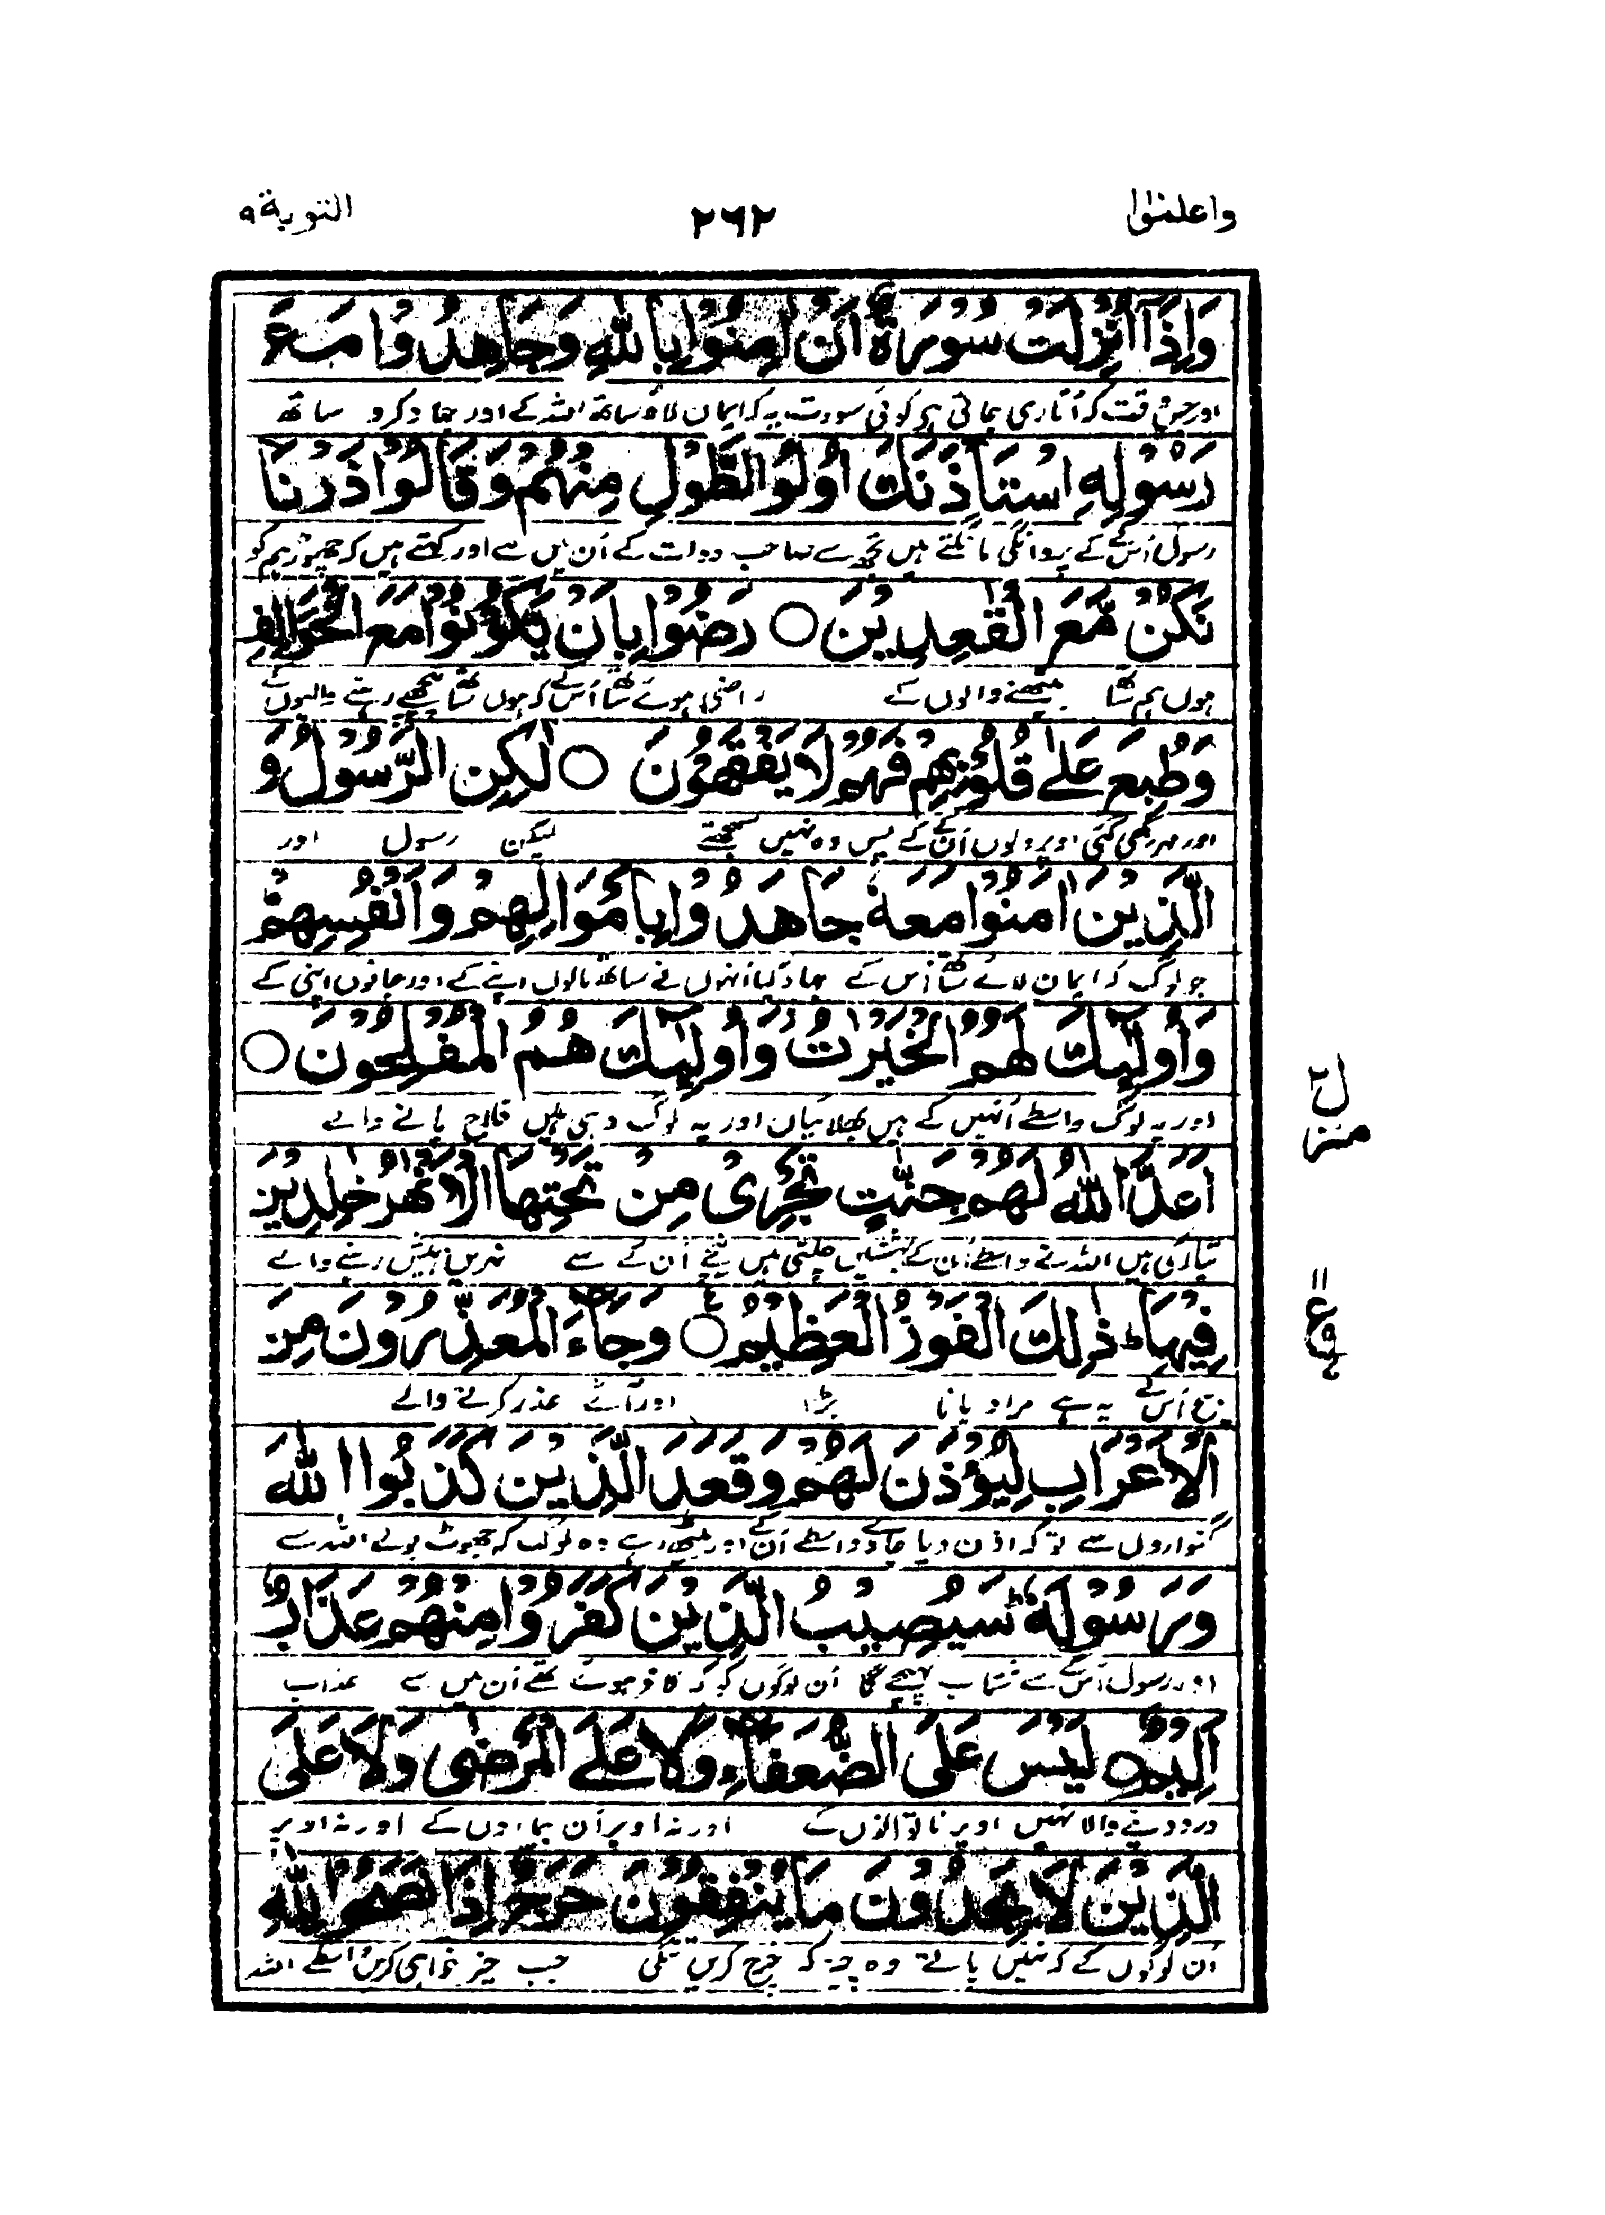 واعلموا ۲۶۲ التوبة ۹
وَاِذَآ اُنْزِلَتْ سُوْرَةٌ اَنْ اٰمِنُوْا بِاللّٰهِ وَجَاهِدُوْا مَعَ
اور جس وقت کہ اُتاری جاتی ہے کوئی سورت یہ کہ ایمان لاؤ ساتھ اللہ کے اور جہاد کرو ساتھ
رَسُوْلِهِ اسْتَاْذَنَكَ اُولُوا الطَّوْلِ مِنْهُمْ وَقَالُوْا ذَرْنَا
رسول اُس کے کے پروانگی مانگتے ہیں تجھ سے صاحب دولت کے اُن میں سے اور کہتے ہیں کہ چھوڑ ہم کو
نَكُنْ مَّعَ الْقٰعِدِيْنَ ○ رَضُوْا بِاَنْ يَّكُوْنُوْا مَعَ الْخَوَالِفِ
ہوں ہم ساتھ بیٹھنے والوں کے راضی ہوئے ساتھ اُس کے کہ ہوں ساتھ پیچھے رہنے والیوں کے
وَطُبِعَ عَلٰى قُلُوْبِهِمْ فَهُمْ لَا يَفْقَهُوْنَ ○ لٰكِنِ الرَّسُوْلُ وَ
اور مہر رکھی گئی اوپر دلوں اُن کے کے پس وہ نہیں سمجھتے لیکن رسول اور
الَّذِيْنَ اٰمَنُوْا مَعَهٗ جَاهَدُوْا بِاَمْوَالِهِمْ وَاَنْفُسِهِمْ
جو لوگ کہ ایمان لائے ساتھ اُس کے جہاد کیا اُنہوں نے ساتھ مالوں اپنے کے اور جانوں اپنی کے
وَاُولٰٓئِكَ لَهُمُ الْخَيْرٰتُ وَاُولٰٓئِكَ هُمُ الْمُفْلِحُوْنَ ○
اور یہ لوگ واسطے اُنہیں کے ہیں بھلائیاں اور یہ لوگ وہی ہیں فلاح پانے والے
منزل ۲
اَعَدَّ اللّٰهُ لَهُمْ جَنّٰتٍ تَجْرِيْ مِنْ تَحْتِهَا الْاَنْهٰرُ خٰلِدِيْنَ
تیار کی ہیں اللہ نے واسطے اُن کے بہشتیں چلتی ہیں نیچے اُن کے سے نہریں ہمیش رہنے والے
فِيْهَا ؕ ذٰلِكَ الْفَوْزُ الْعَظِيْمُ ○ وَجَآءَ الْمُعَذِّرُوْنَ مِنَ
بیچ اُس کے یہ ہے مراد پانا بڑا اور آئے عذر کرنے والے
الْاَعْرَابِ لِيُؤْذَنَ لَهُمْ وَقَعَدَ الَّذِيْنَ كَذَبُوا اللّٰهَ
گنواروں سے تو کہ اذن دیا جاوے واسطے اُن کے اور بیٹھ رہے وہ لوگ کہ جھوٹ بولے اللہ سے
وَرَسُوْلَهٗ ؕ سَيُصِيْبُ الَّذِيْنَ كَفَرُوْا مِنْهُمْ عَذَابٌ
اور رسول اُس کے سے شتاب پہنچے گا اُن لوگوں کو کہ کافر ہوئے تھے اُن میں سے عذاب
اَلِيْمٌ ○ لَيْسَ عَلَى الضُّعَفَآءِ وَلَا عَلَى الْمَرْضٰى وَلَا عَلَى
درد دینے والا نہیں اوپر ناتوانوں کے اور نہ اوپر اُن بیماروں کے اور نہ اوپر
الَّذِيْنَ لَا يَجِدُوْنَ مَا يُنْفِقُوْنَ حَرَجٌ اِذَا نَصَحُوْا لِلّٰهِ
اُن لوگوں کے کہ نہیں پاتے وہ چیز کہ خرچ کریں تنگی جب خیر خواہی کریں واسطے اللہ